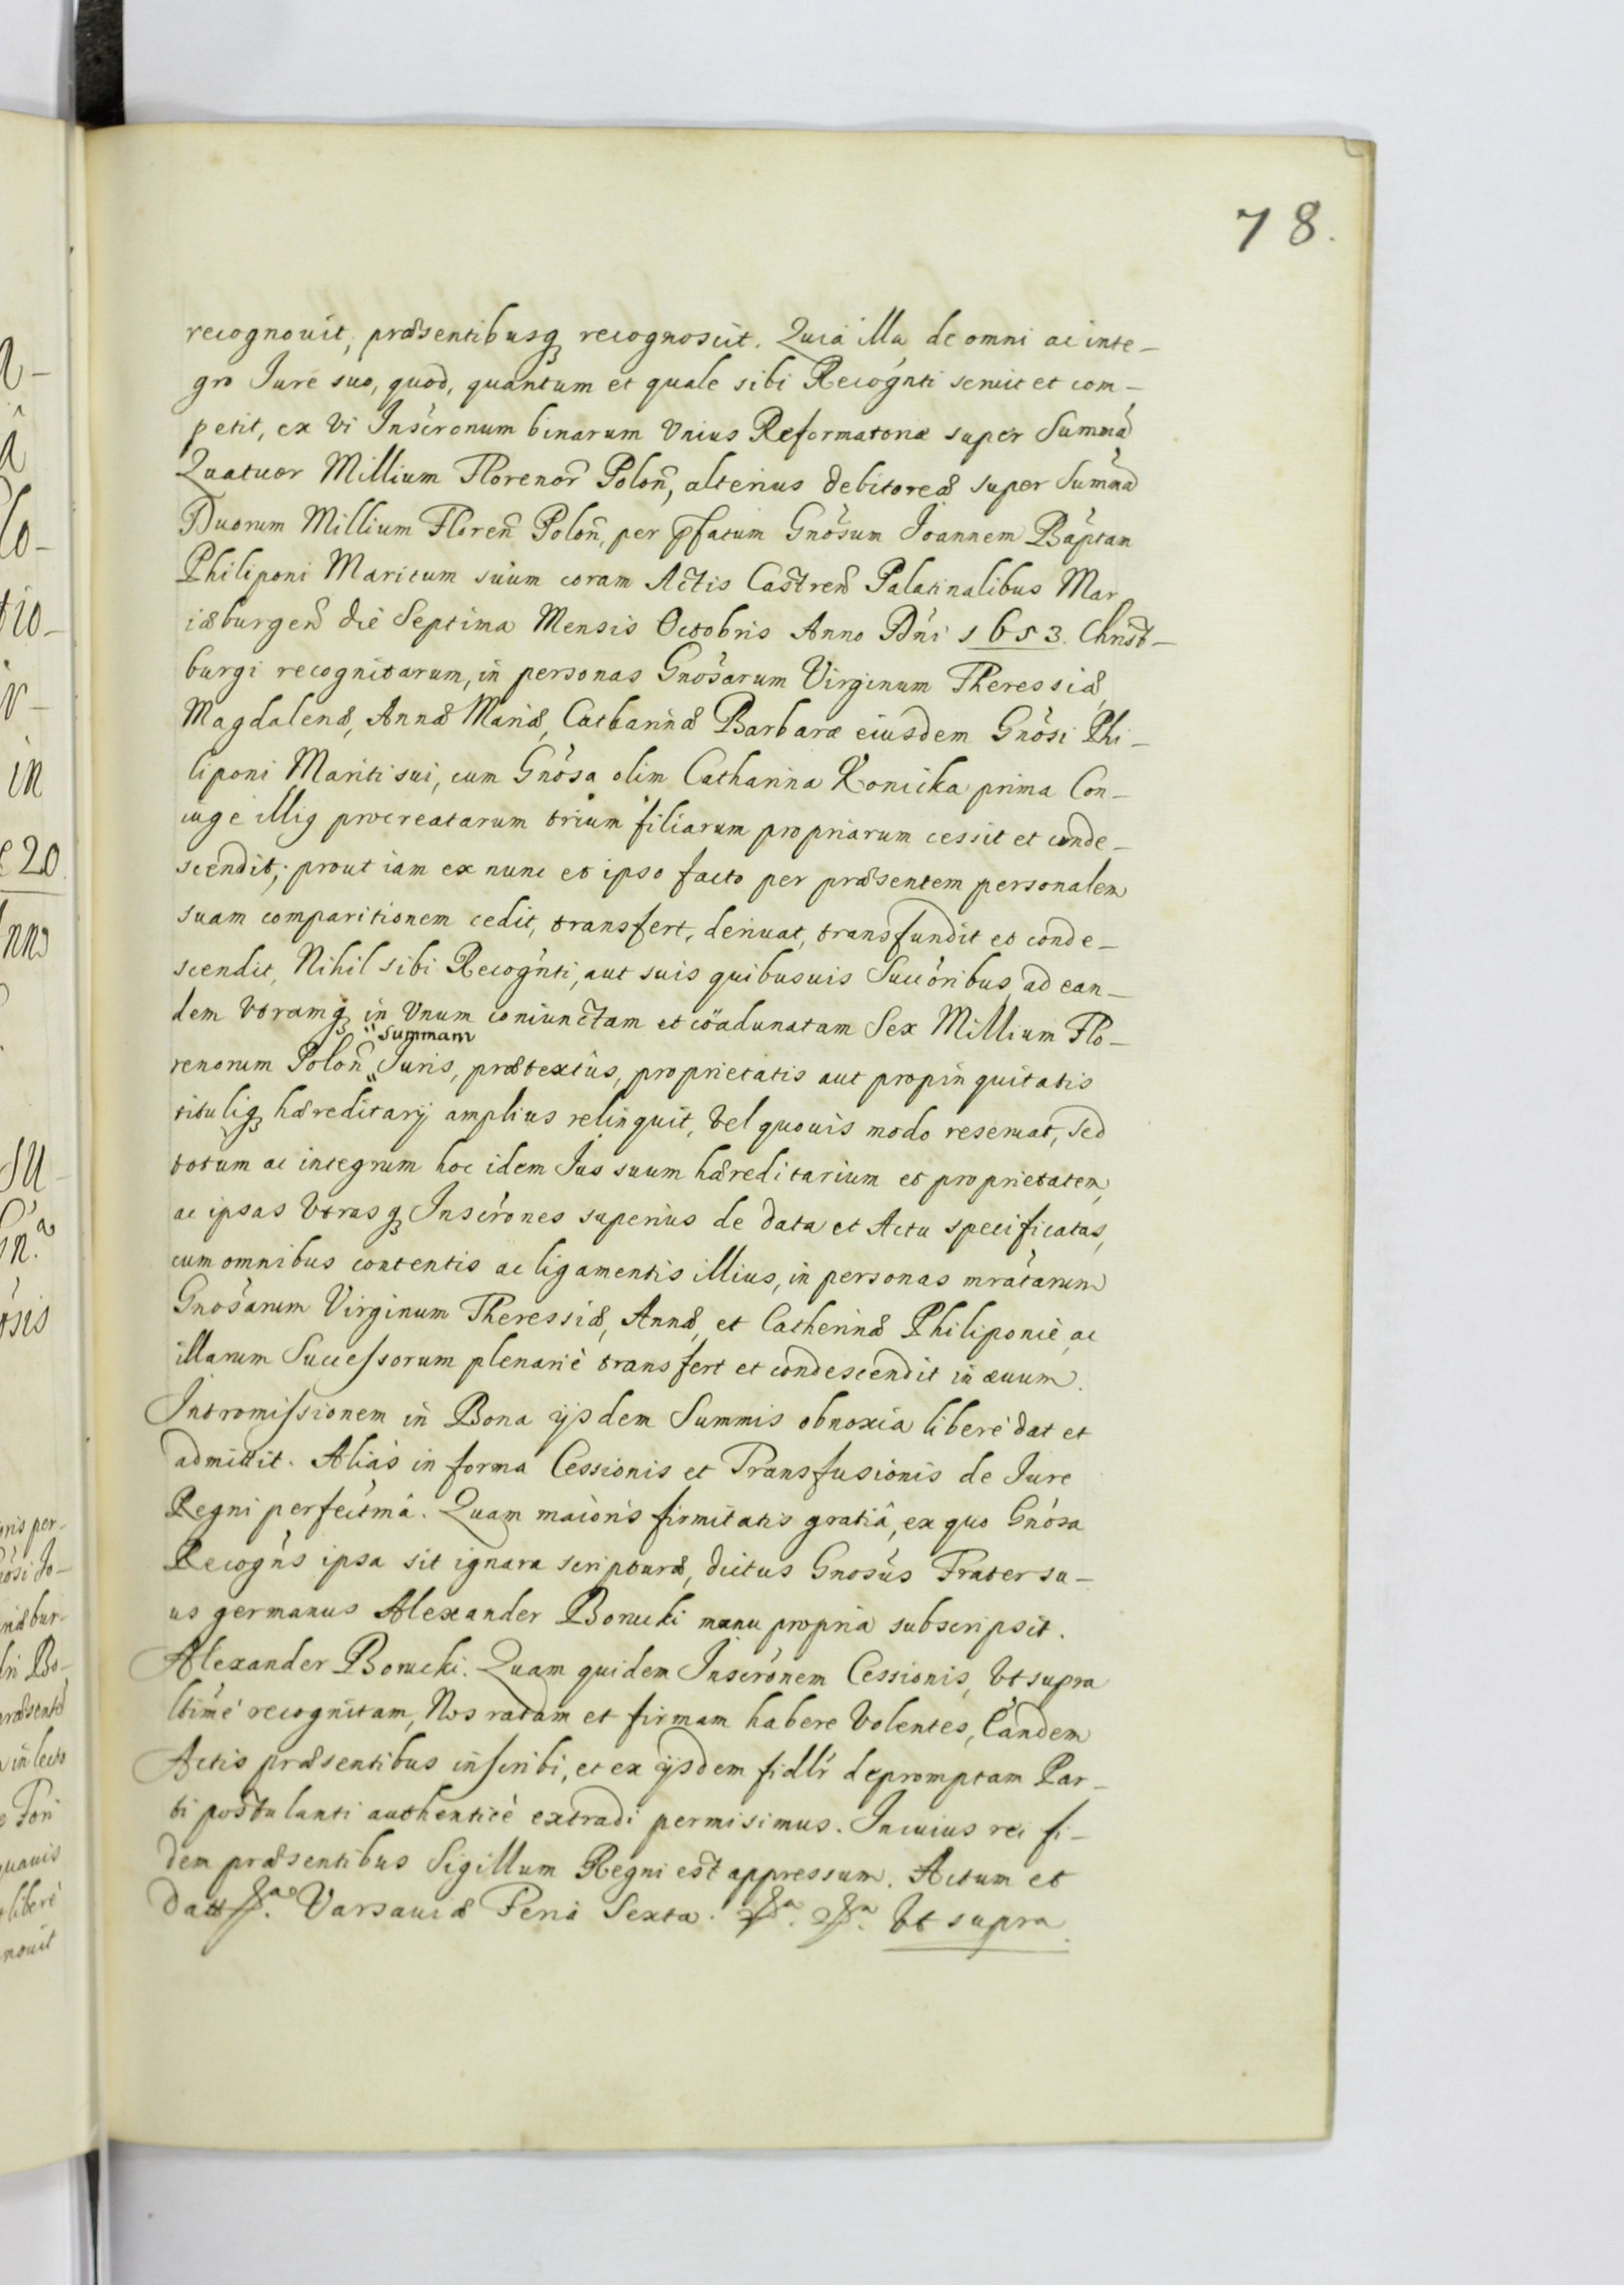 78.
recognouit, præsentibusq; recognoscit. Quia illa de omni ac inte–
gro Jure suo, quod, quantum et quale sibi Recognti seruit et com–
petit, ex Vi Inscronum binarum Vnius Reformatoriæ super Summa
Quatuor Millium Florenor Polon, alterius debitoreæ super Summa
Duorum Millium Floren Polon, per pfatum Gnosum Joannem Baptam
Philiponi Maritum suum coram Actis Castren Palatinalibus Mar
iæburgen die Septima Mensis Octobris Anno Dni 1653. Christ–
burgi recognitarum, in personas Gnosarum Virginum Theressiæ,
Magdalenæ, Annæ Mariæ, Catharinæ Barbaræ eiusdem Gnosi Phi–
liponi Mariti sui, cum Gnosa olim Catharina Konicka prima Con–
iuge illiq procreatarum trium filiarum propriarum cessit et conde–
scendit; prout iam ex nunc et ipso facto per præsentem personalem
suam comparitionem cedit, transfert, deriuat, transfundit et conde–
scendit, Nihil sibi Recognti, aut suis quibusuis Succoribus ad ean–
dem Vtramq; in Vnum coniunctam et coädunatam Sex Millium Flo–
summam
renorum Polon Juris, prætextus, proprietatis aut propinquitatis
tituliq; hæreditarij amplius relinquit, Vel quouis modo reseruat, Sed
totum ac integrum hoc idem Jus suum hæreditarium et proprietatem,
ac ipsas Vtrasq; Inscrones superius de data et Actu specificatas,
cum omnibus contentis ac ligamentis illius, in personas mratarum
Gnosarum Virginum Theressiæ, Annæ, et Catherinæ Philiponiè, ac
illarum Successorum plenariè transfert et condescendit in æuum.
Intromissionem in Bona ijsdem Summis obnoxia liberè dat et
admittit. Aliàs in forma Cessionis et Transfusionis de Jure
Regni perfectmâ. Quam maioris firmitatis gratiâ, ex quo Gnosa
Recogns ipsa sit ignara scripturæ, dictus Gnosus Frater su–
us germanus Alexander Borucki manu propria subscripsit.
Alexander Borucki. Quam quidem Inscronem Cessionis, Vt supra
ltimè recognitam, Nos ratam et firmam habere Volentes, Eandem
Actis præsentibus inscribi, et ex ijsdem fidlr depromptam Par–
ti postulanti authenticè extradi permisimus. In cuius rei fi–
dem præsentibus Sigillum Regni est appressum. Actum et
datt Varsauiæ Feria Sexta. Vt supra.